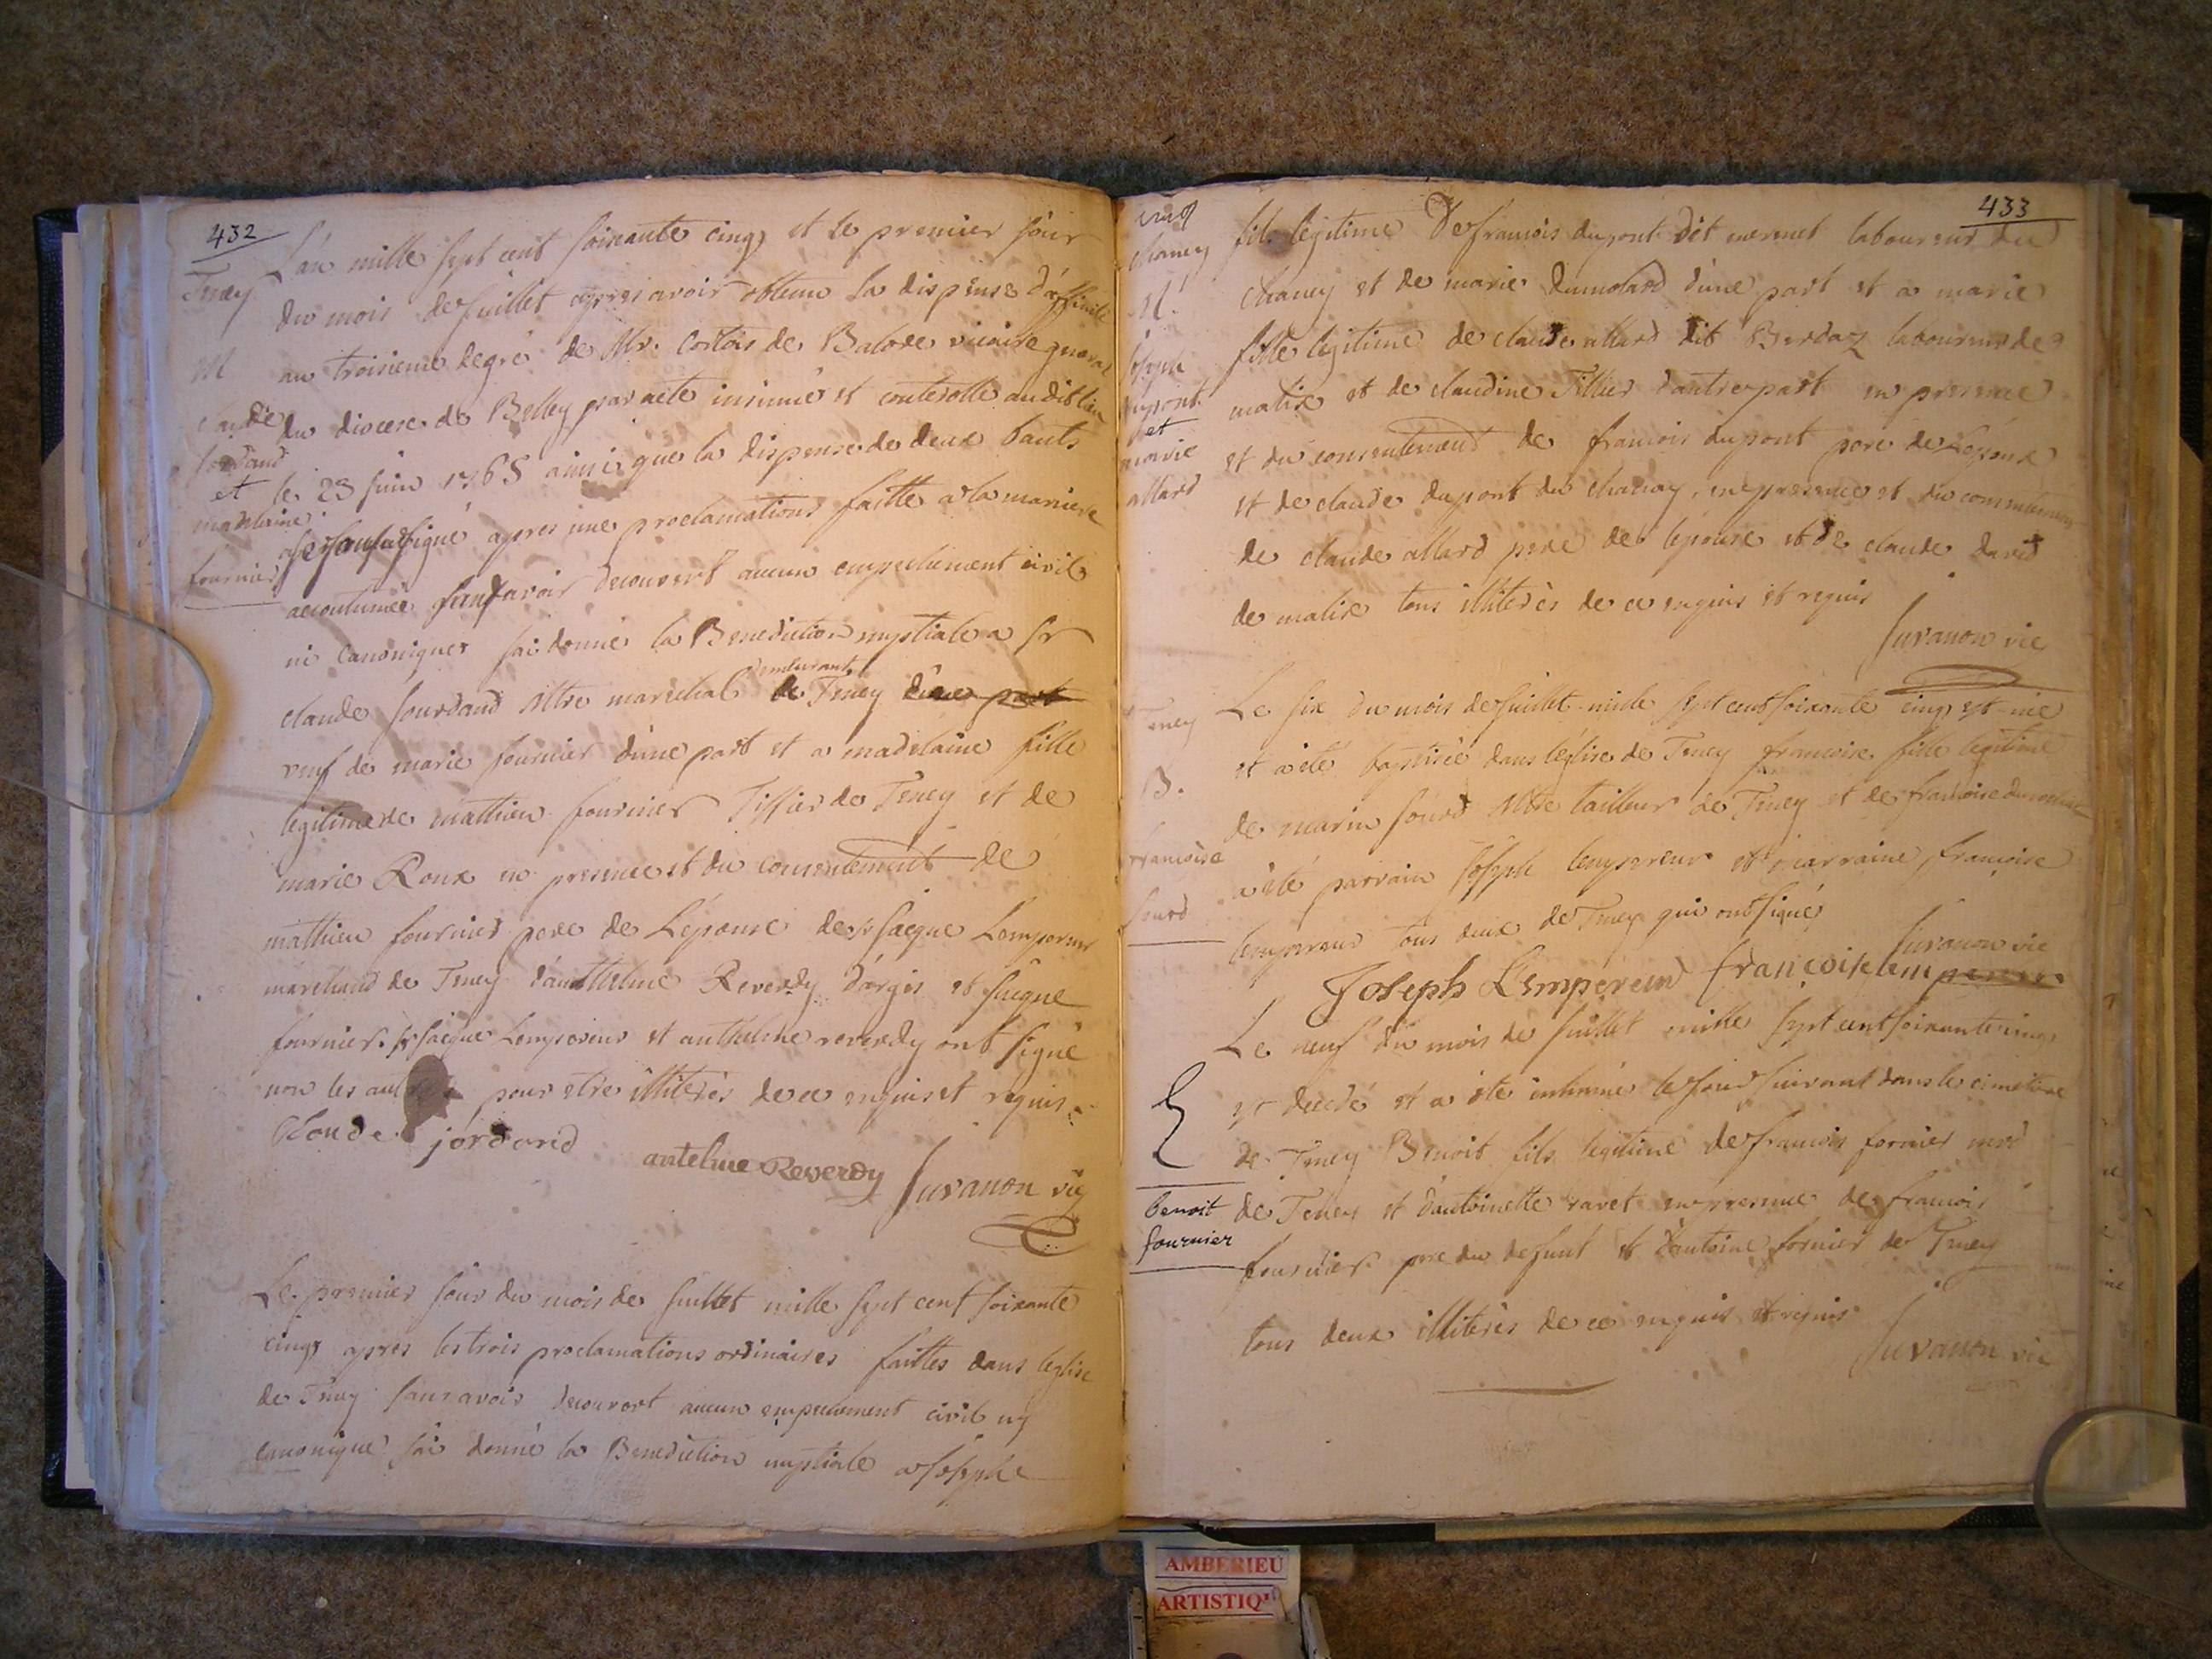 432
Teney
M
claude
jordand
et
madelaine
fournier
L'an mille sept cent soixante cinq et le premier jour
du mois de juillet apres avoir obtenu la dispense d'affinité
au troisieme degré de Mr. Cortois de Balore vicaire general
du diocese de Belley par acte insinué et controllé audit lieu
le 23 juin 1765 ainsi que la dispense de deux bants
apres une proclamations faitte a la maniere
accoutumée sans avoir decouvert aucun empechement civil
ni canonique j'ai donné la Benediction nuptiale a sr
claude jourdand Mtre marechal demeurant de Teney d'une part
veuf de marie fournier d'une part et a madelaine fille
legitime de mathieu fournier Tissier de Teney et de
marie Roux en presence et du consentement de
mathieu fournier pere de L'épouse de sr jacque Lempereur
marchand de Teney d'anthelme Reverdy d'argis et jacque
fournier. sr jacque Lempereur et anthelme reverdy ont signé
non les autres pour etre illiterés de ce enquis et requis
Cloude jordand
antelme Reverdy Juvanon vic
Le premier jour du mois de juillet mille sept cent soixante
cinq apres les trois proclamations ordinaires faittes dans leglise
de Teney sans avoir decouvert aucun empechement civil ny
canonique j'ai donné la Benediction nuptiale a joseph
433
chaney
M.
joseph
dupont
et
marie
allard
fils legitime de francois dupont dit mermet laboureur du
Chaney et de marie dumolard d'une part et a marie
fille legitime de claude allard dit Berdaz laboureur de
malix et de claudine Tillier d'autre part en presence
et du consentement de francois dupont pere de Lépoux
et de claude dupont du chanay, en presence et du consentement
de claude allard pere de lépouse et de claude david
de malix tous illiterés de ce enquis et requis
Juvanon vic
Teney
B.
francoise
jourd
Le six du mois de juillet mille sept cent soixante cinq est née
et a été baptisée dans léglise de Teney francoise fille legitime
de marin jourd Mtre tailleur de Teney et de francoise
a été parrain joseph lempereur et marraine francoise
lempereur tous deux de Teney qui ont signés
Juvanon vic
Joseph Lempereur françoise lempereur
Le neuf du mois de juillet mille sept cent soixante cinq
est decedé et a été inhumé le jour suivant dans le cimetiere
de Teney Benoit fils legitime de francois fornier
de Teney et d'antoinette ravet en presence de francois
fournier pere du defunt et d'antoine fornier de Teney
tous deux illiterés de ce enquis et requis
Juvanon vic
benoit
fournier
AMBERIEU
ARTISTIQ